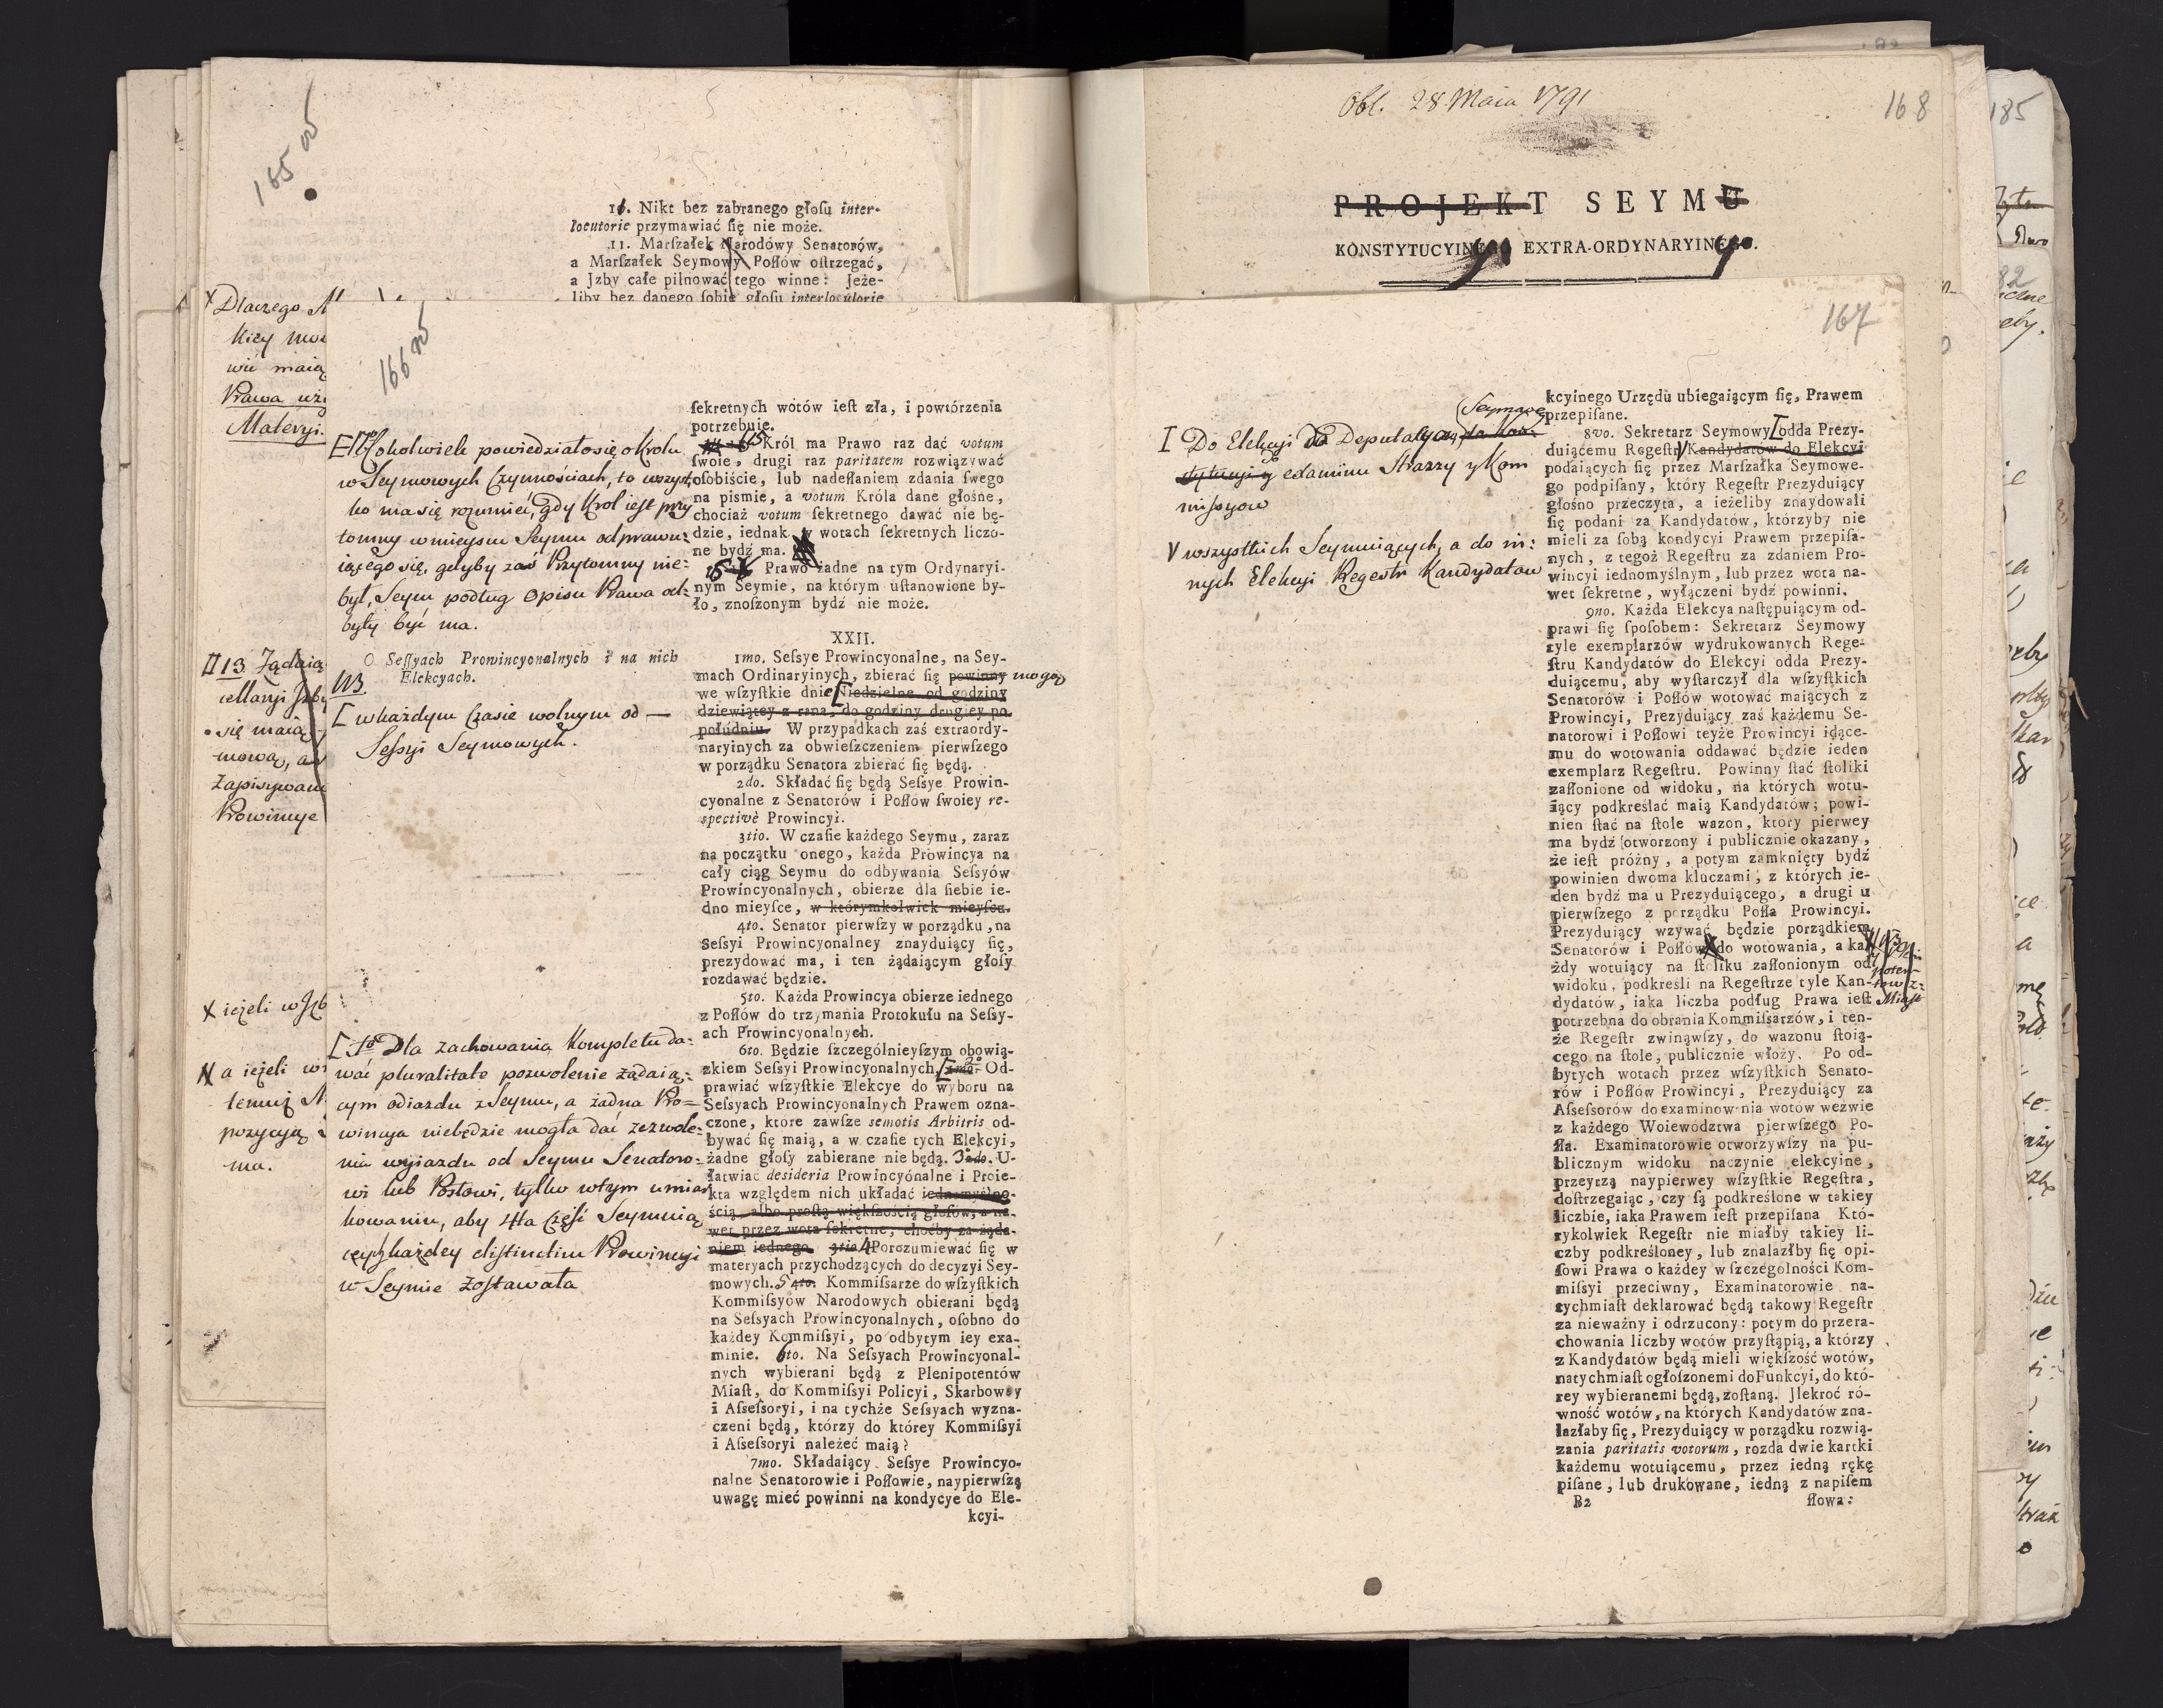 165 v
16. Nikt bez zabranego głoſu inter-
locutorie przymawiać ſię nie może.
11. Marſzałek Narodówy Senatorów,
a Marſzałek Seymowy Poſłów oſtrzegać,
a Jzby całe pilnować tego winne: Jeże-
liby bez danego ſobie głoſu interloculorie
Dlaczego
kiey
wić maią
Prawa
Materyi.
13 Żądaią
się maią
mową, a
Zapisywani
Prowincye
x ieżeli w Jzb
a ieżeli
temuż
pozycyą
ma.
166 v
ſekretnych wotów ieſt zła, i powtórzenia
potrzebuie.
15 Król ma Prawo raz dać votum
ſwoie, drugi raz paritatem rozwiązywać
oſobiście, lub nadeſłaniem zdania ſwego
na pismie, a votum Króla dane głośne,
chociaż votum ſekretnego dawać nie bę-
dzie, iednak w wotach ſekretnych liczo-
ne bydź ma.
Prawo żadne na tym Ordynaryi-
nym Seymie, na którym uſtanowione by-
ło, znoſzonym bydź nie może.
Cokolwiek powiedziało się o Krolu
w Seymowych Czynnościach, to wszyst-
ko ma się rozumieć, gdy Krol iest przy
tomny w mieyscu Seymu odprawu-
iącego się, gdyby zaś Przytomny nie-
był, Seym podług Opisu Prawa od-
byty być ma.
O Seſſyach Prowincyonalnych i na nich
Elekcyach.
[ w każdym Czasie wolnym od
Sessyi Seymowych.
XXII.
1mo. Seſsye Prowincyonalne, na Sey-
mach Ordinaryinych, zbierać ſię powinny mogą
we wſzyſtkie dnie [ Niedzielne od godziny
dziewiątey z rana, do godziny drugiey po
południu. W przypadkach zaś extraordy-
naryinych za obwieſzczeniem pierwſzego
w porządku Senatora zbierać ſię będą.
2do. Składać ſię będą Seſsye Prowin-
cyonalne z Senatorów i Poſłów ſwoiey re-
spectivè Prowincyi.
3tio. W czaſie każdego Seymu, zaraz
na początku onego, każda Prowincya na
cały ciąg Seymu do odbywania Seſsyów
Prowincyonalnych, obierze dla ſiebie ie-
dno mieyſce, w którymkolwiek mieyſcu.
4to. Senator pierwſzy w porządku, na
Seſsyi Prowincyonalney znayduiący ſię,
prezydować ma, i ten żądaiącym głoſy
rozdawać będzie.
5to. Każda Prowincya obierze iednego
z Poſłów do trzymania Protokułu na Seſsy-
ach Prowincyonalnych.
6to. Będzie ſzczególnieyſzym obowią-
zkiem Seſsyi Prowincyonalnych [ 2º Od-
prawiać wſzyſtkie Elekcye do wyboru na
Seſsyach Prowincyonalnych Prawem ozna-
czone, które zawſze semotis Arbitris od-
bywać ſię maią, a w czaſie tych Elekcyi,
żadne głoſy zabierane nie będą. 3º 2do. U-
łatwiać desideria Prowincyónalne i Proie-
kta względem nich układać iednomyślno-
ścią, albo proſtą większością głoſów, a na-
wet przez wota ſekretne, choćby za żąda-
niem iednego 3tio 4 Porozumiewać ſię w
materyach przychodzących do decyzyi Sey-
mowych. 5 4to. Kommiſsarze do wſzyſtkich
Kommiſsyów Narodowych obierani będą
na Seſsyach Prowincyonalnych, oſobno do
każdey Kommiſsyi, po odbytym iey exa-
minie. 6to. Na Seſsyach Prowincyonal-
nych wybierani będą z Plenipotentów
Miaſt, do Kommiſsyi Policyi, Skarbowey
i Aſseſsoryi, i na tychże Seſsyach wyzna-
czeni będą, którzy do którey Kommiſsyi
i Aſseſsoryi należeć maią?
7mo. Składaiący Seſsye Prowincyo-
nalne Senatorowie i Poſłowie, naypierwſzą
uwagę mieć powinni na kondycye do Ele-
kcyi-
[ 1º Dla zachowania Kompletu da-
wać pluralitate pozwolenie żądaią-
cym odiazdu z Seymu, a żadna Pro-
wincya niebędzie mogła dać zezwole-
nia wyiazdu od Seymu Senatoro-
wi lub Posłowi, tylko w tym umiar
kowaniu, aby 4ta Część Seymuią
cych z każdey distinctim Prowincyi
w Seymie zostawała
Obl. 28 Maia 1791
168
PROJEKT SEYMU
KONSTYTUCYINEGO EXTRA-ORDYNARYINEGO.
167
I Do Elekcyi Deputatow, Seymowe
do examinu Strazy y Kom
missyow
V wszystkich Seymuiących, a do in-
nych Elekcyi Regestr Kandydatow
kcyinego Urzędu ubiegaiącym ſię, Prawem
przepiſane.
8vo. Sekretarz Seymowy [ odda Prezy-
duiącemu Regeſtr V Kandydatów do Elekcyi
podaiących ſię przez Marſzałka Seymowe-
go podpiſany, który Regeſtr Prezyduiący
głośno przeczyta, a ieżeliby znaydowali
ſię podani za Kandydatów, którzyby nie
mieli za ſobą kondycyi Prawem przepiſa-
nych, z tegoż Regeſtru za zdaniem Pro-
wincyi iednomyślnym, lub przez wota na-
wet ſekretne, wyłączeni bydź powinni.
9no. Każda Elekcya naſtępuiącym od-
prawi ſię ſpoſobem: Sekretarz Seymowy
tyle exemplarzów wydrukowanych Rege-
ſtru Kandydatów do Elekcyi odda Prezy-
duiącemu, aby wyſtarczył dla wſzyſtkich
Senatorów i Poſłów wotować maiących z
Prowincyi, Prezyduiący zaś każdemu Se-
natorowi i Poſłowi teyże Prowincyi idące-
mu do wotowania oddawać będzie ieden
exemplarz Regeſtru. Powinny ſtać ſtoliki
zaſłonione od widoku, na których wotu-
iący podkreślać maią Kandydatów; powi-
nien ſtać na ſtole wazon, ktory pierwey
ma bydź otworzony i publicznie okazany,
że ieſt próżny, a potym zamknięty bydź
powinien dwoma kluczami, z których ie-
den bydź ma u Prezyduiącego, a drugi u
pierwſzego z porządku Poſła Prowincyi.
Prezyduiący wzywać będzie porządkiem
Senatorów i Poſłów do wotowania, a ka-
żdy wotuiący na ſtoliku zaſłonionym od
widoku, podkreśli na Regeſtrze tyle Kan-
dydatów, iaka liczba podług Prawa ieſt
potrzebna do obrania Kommiſsarzów, i ten-
że Regeſtr zwinąwſzy, do wazonu ſtoią-
cego na ſtole, publicznie włoży. Po od-
bytych wotach przez wſzyſtkich Senato-
rów i Poſłów Prowincyi, Prezyduiący za
Aſseſsorów do examinow-nia wotów wezwie
z każdego Woiewództwa pierwſzego Po-
ſła. Examinatorowie otworzywſzy na pu-
blicznym widoku naczynie elekcyine,
przeyrzą naypierwey wſzyſtkie Regeſtra,
doſtrzegaiąc, czy ſą podkreślone w takiey
liczbie, iaka Prawem ieſt przepiſana Któ-
rykolwiek Regeſtr nie miałby takiey li-
czby podkreśloney, lub znalazłby ſię opi-
ſowi Prawa o każdey w ſzczególności Kom-
miſsyi przeciwny, Examinatorowie na-
tychmiaſt deklarować będą takowy Regeſtr
za nieważny i odrzucony: potym do przera-
chowania liczby wotów przyſtąpią, a którzy
z Kandydatów będą mieli więkſzość wotów,
natychmiaſt ogłoſzonemi do Funkcyi, do któ-
rey wybieranemi będą, zoſtaną. Jlekroć ró-
wność wotów, na których Kandydatów zna-
lazłaby ſię, Prezyduiący w porządku rozwią-
zania paritatis votorum, rozda dwie kartki
każdemu wotuiącemu, przez iedną rękę
piſane, lub drukowane, iedną z napiſem
B2 ſłowa:
185